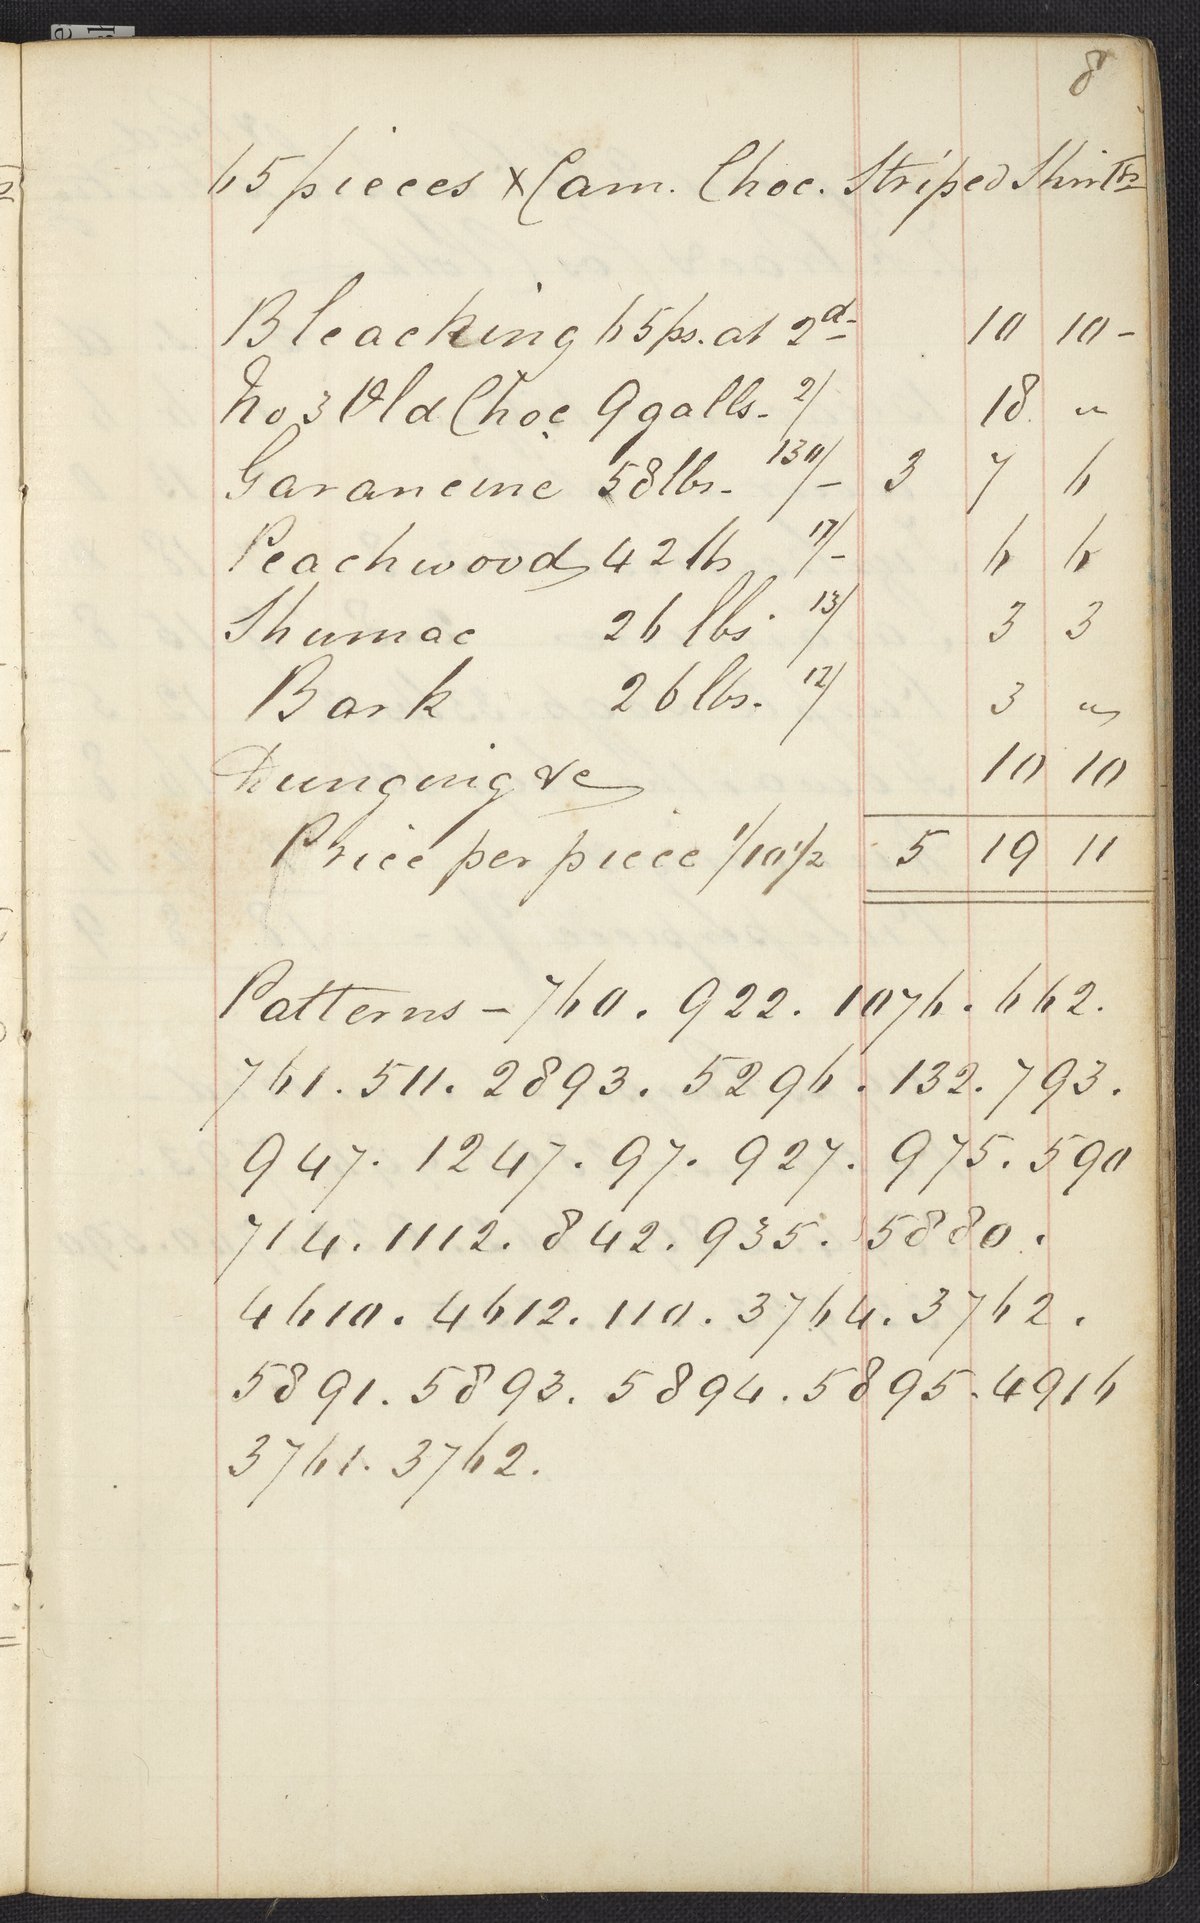 8
65 pieces X Cam. Choc. Striped Shirt
Bleaching 65 ps. at 2d- 10 10-
No 3 Old Choc 9 galls. 2/ 18 "
Garancine 58 lbs. 130/- 3 7 6
Peachwood 42 lb 17/- 6 6
Shumac 26 lbs 13/ 3 3
Bark 26 lbs. 12/ 3 "
Dunging &c 10 10
Price per piece 1/10 1/2 5 19 11
Patterns - 760. 922. 1076. 662.
761. 511. 2893. 5296. 132. 793.
947. 1247. 97. 927. 975. 590
714. 1112. 842. 935. 5880.
4610. 4612. 110. 3764. 3762.
5891. 5893. 5894. 5895. 4916
3761. 3762.